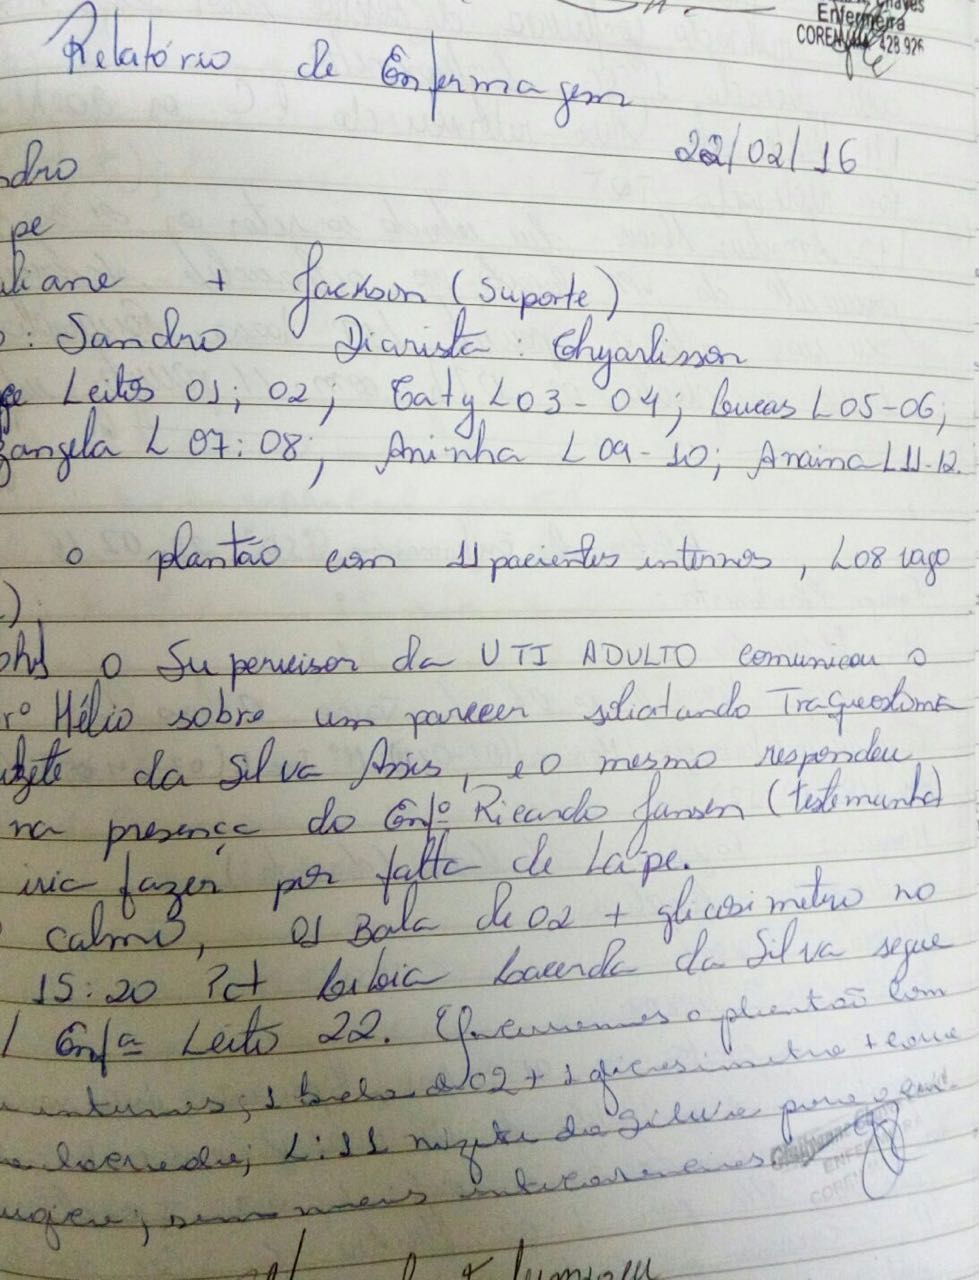 Chaves
Enfermeira
COREN 428.926
Relatório de Enfermagem
22/02/16
dro
pe
liane + Jackson (Suporte)
: Sandro Diarista: Thyarlisson
Leitos 01; 02; Caty L03-04; Lucas L05-06;
zangela L 07:08; Aninha L 09-10; Anaina L11-12.
o plantão com 11 pacientes internos, L08 vago
)
o Supervisor da UTI ADULTO comunicou o
rº Hélio sobre um parecer solicitando Traqueostomia
zete da Silva Assis, e o mesmo respondeu
na presença do Enfº Ricardo Jansen (testemunha)
iria fazer por falta de Lape.
calmo, 01 Bala de O2 + glicosimetro no
15:20 Pct Lacerda da Silva segue
Enfª Leito 22. o plantão com
internos, 1 bala de O2 + 1 glicosimetro +
L:11 da Silva para o
; sem mais intercorrencias.
ENFERMEIRA
COREN